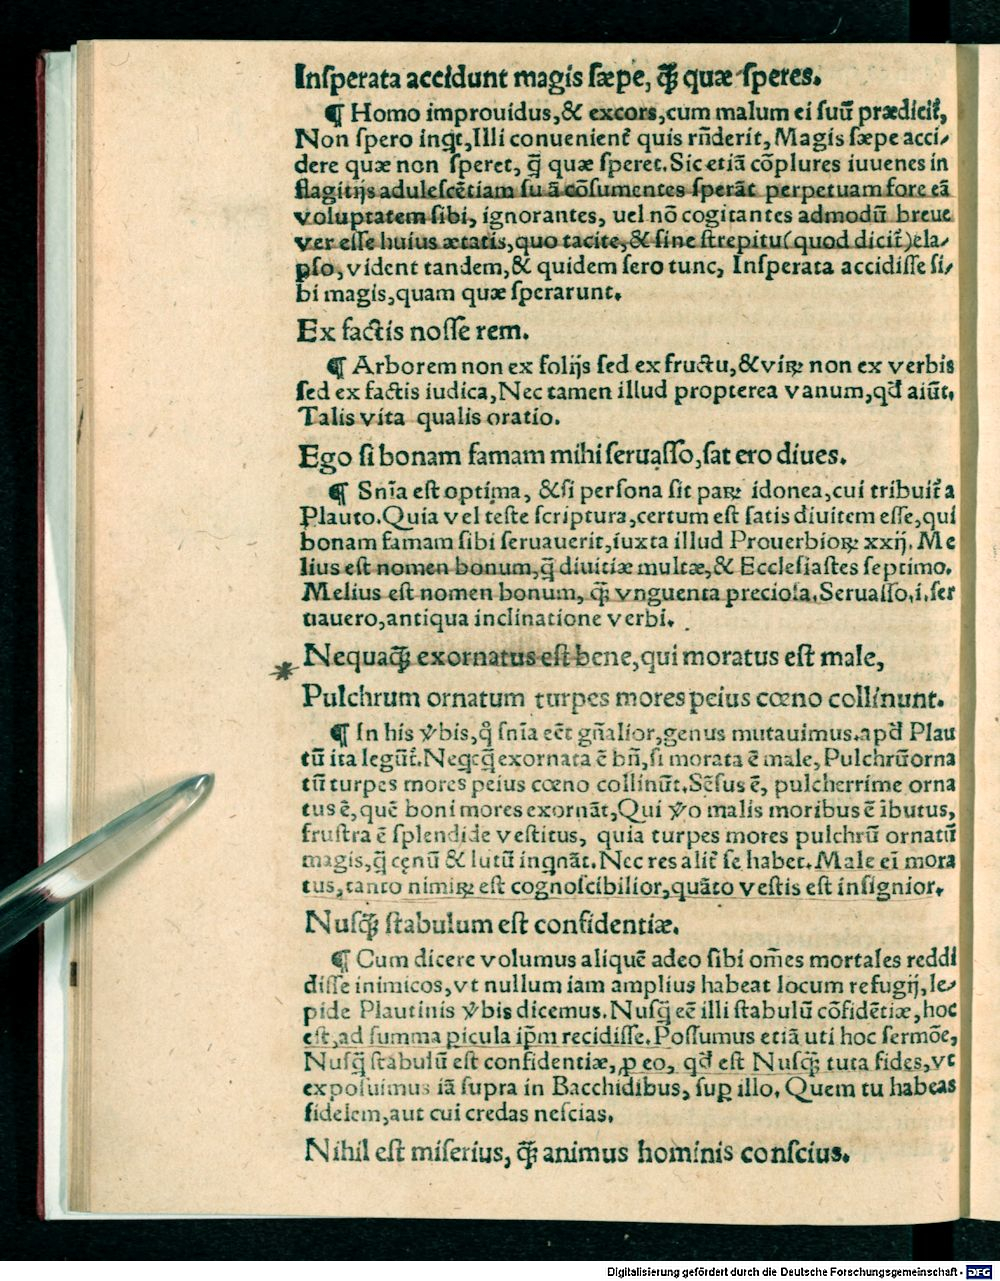 Inſperata accidunt magis ſæpe, q̃ȝ quæ ſperes.
¶ Homo improuidus,& excors,cum malum ei ſuũ prædicit̃,
Non ſpero inqt,Illi conuenient̃ quis rñderit, Magis ſæpe acci/
dere quæ non ſperet, q̃ quæ ſperet. Sic etiã cõplures iuuenes in
flagitijs aduleſcẽtiam ſuã cõſumentes ſperãt perpetuam fore eã
voluptatem ſibi, ignorantes, uel nõ cogitantes admodũ breue
ver eſſe huius ætatis,quo tacite,& ſine ſtrepitu(quod dicit̃)ela/
pſo, vident tandem,& quidem ſero tunc, Inſperata accidiſſe ſi/
bi magis,quam quæ ſperarunt.
Ex factis noſſe rem.
¶ Arborem non ex folijs ſed ex fructu,&viꝝ non ex verbis
ſed ex factis iudica, Nec tamen illud propterea vanum,qd̃ aiũt.
Talis vita qualis oratio.
Ego ſi bonam famam mihi ſeruaſſo,ſat ero diues.
¶ Snĩa eſt optima, &ſi perſona ſit paꝝ idonea,cui tribuit̃ a
Plauto.Quia vel teſte ſcriptura,certum eſt ſatis diuitem eſſe,qui
bonam famam ſibi ſeruauerit,iuxta illud Prouerbioꝝ xxij. Me
lius eſt nomen bonum,q̃ diuitiæ multæ,& Eccleſiaſtes ſeptimo.
Melius eſt nomen bonum, q̃ȝ vnguenta precioſa.Seruaſſo.i.ſer
uauero,antiqua inclinatione verbi.
* Nequaq̃ȝ exornatus eſt bene,qui moratus eſt male,
Pulchrum ornatum turpes mores peius cœno collinunt.
¶ In his v̓bis,q̊ſnĩa eẽt gñalior,genus mutauimus.apd̃ Plau
tũ ita legũt̃.Neqcq̃ exornata ẽ bñ,ſi morata ẽ male, Pulchrũorna
tũ turpes mores peius cœno collinũt.Sẽſus ẽ, pulcherrime orna
tus ẽ,quẽ boni mores exornãt,Qui v̓o malis moribus ẽ ĩbutus,
fruſtra ẽ ſplendide veſtitus, quia turpes mores pulchrũ ornatũ
magis,q̃ cęnũ & lutũ inqnãt.Nec res alit̃ ſe habet.Male eĩ mora
tus,tanto nimiꝝ eſt cognoſcibilior,quãto veſtis eſt inſignior.
Nuſq̃ȝ ſtabulum eſt confidentiæ.
¶ Cum dicere volumus aliquẽ adeo ſibi om̃es mortales reddi
diſſe inimicos,vt nullum iam amplius habeat locum refugij,le/
pide Plautinis v̓bis dicemus.Nuſq̃ eẽ illi ſtabulũ cõfidẽtiæ,hoc
eſt,ad ſumma picula ip̃m recidiſſe.Poſſumus etiã uti hoc ſermõe,
Nuſq̃ ſtabulũ eſt confidentiæ,ꝓ eo, qd̃ eſt Nuſq̃ȝ tuta fides,vt
expoſuimus iã ſupra in Bacchidibus, ſuꝑ illo. Quem tu habeas
fidelem,aut cui credas neſcias.
Nihil eſt miſerius, q̃ȝ animus hominis conſcius.
Digitalisierung gefördert durch die Deutsche Forschungsgemeinschaft - DFG